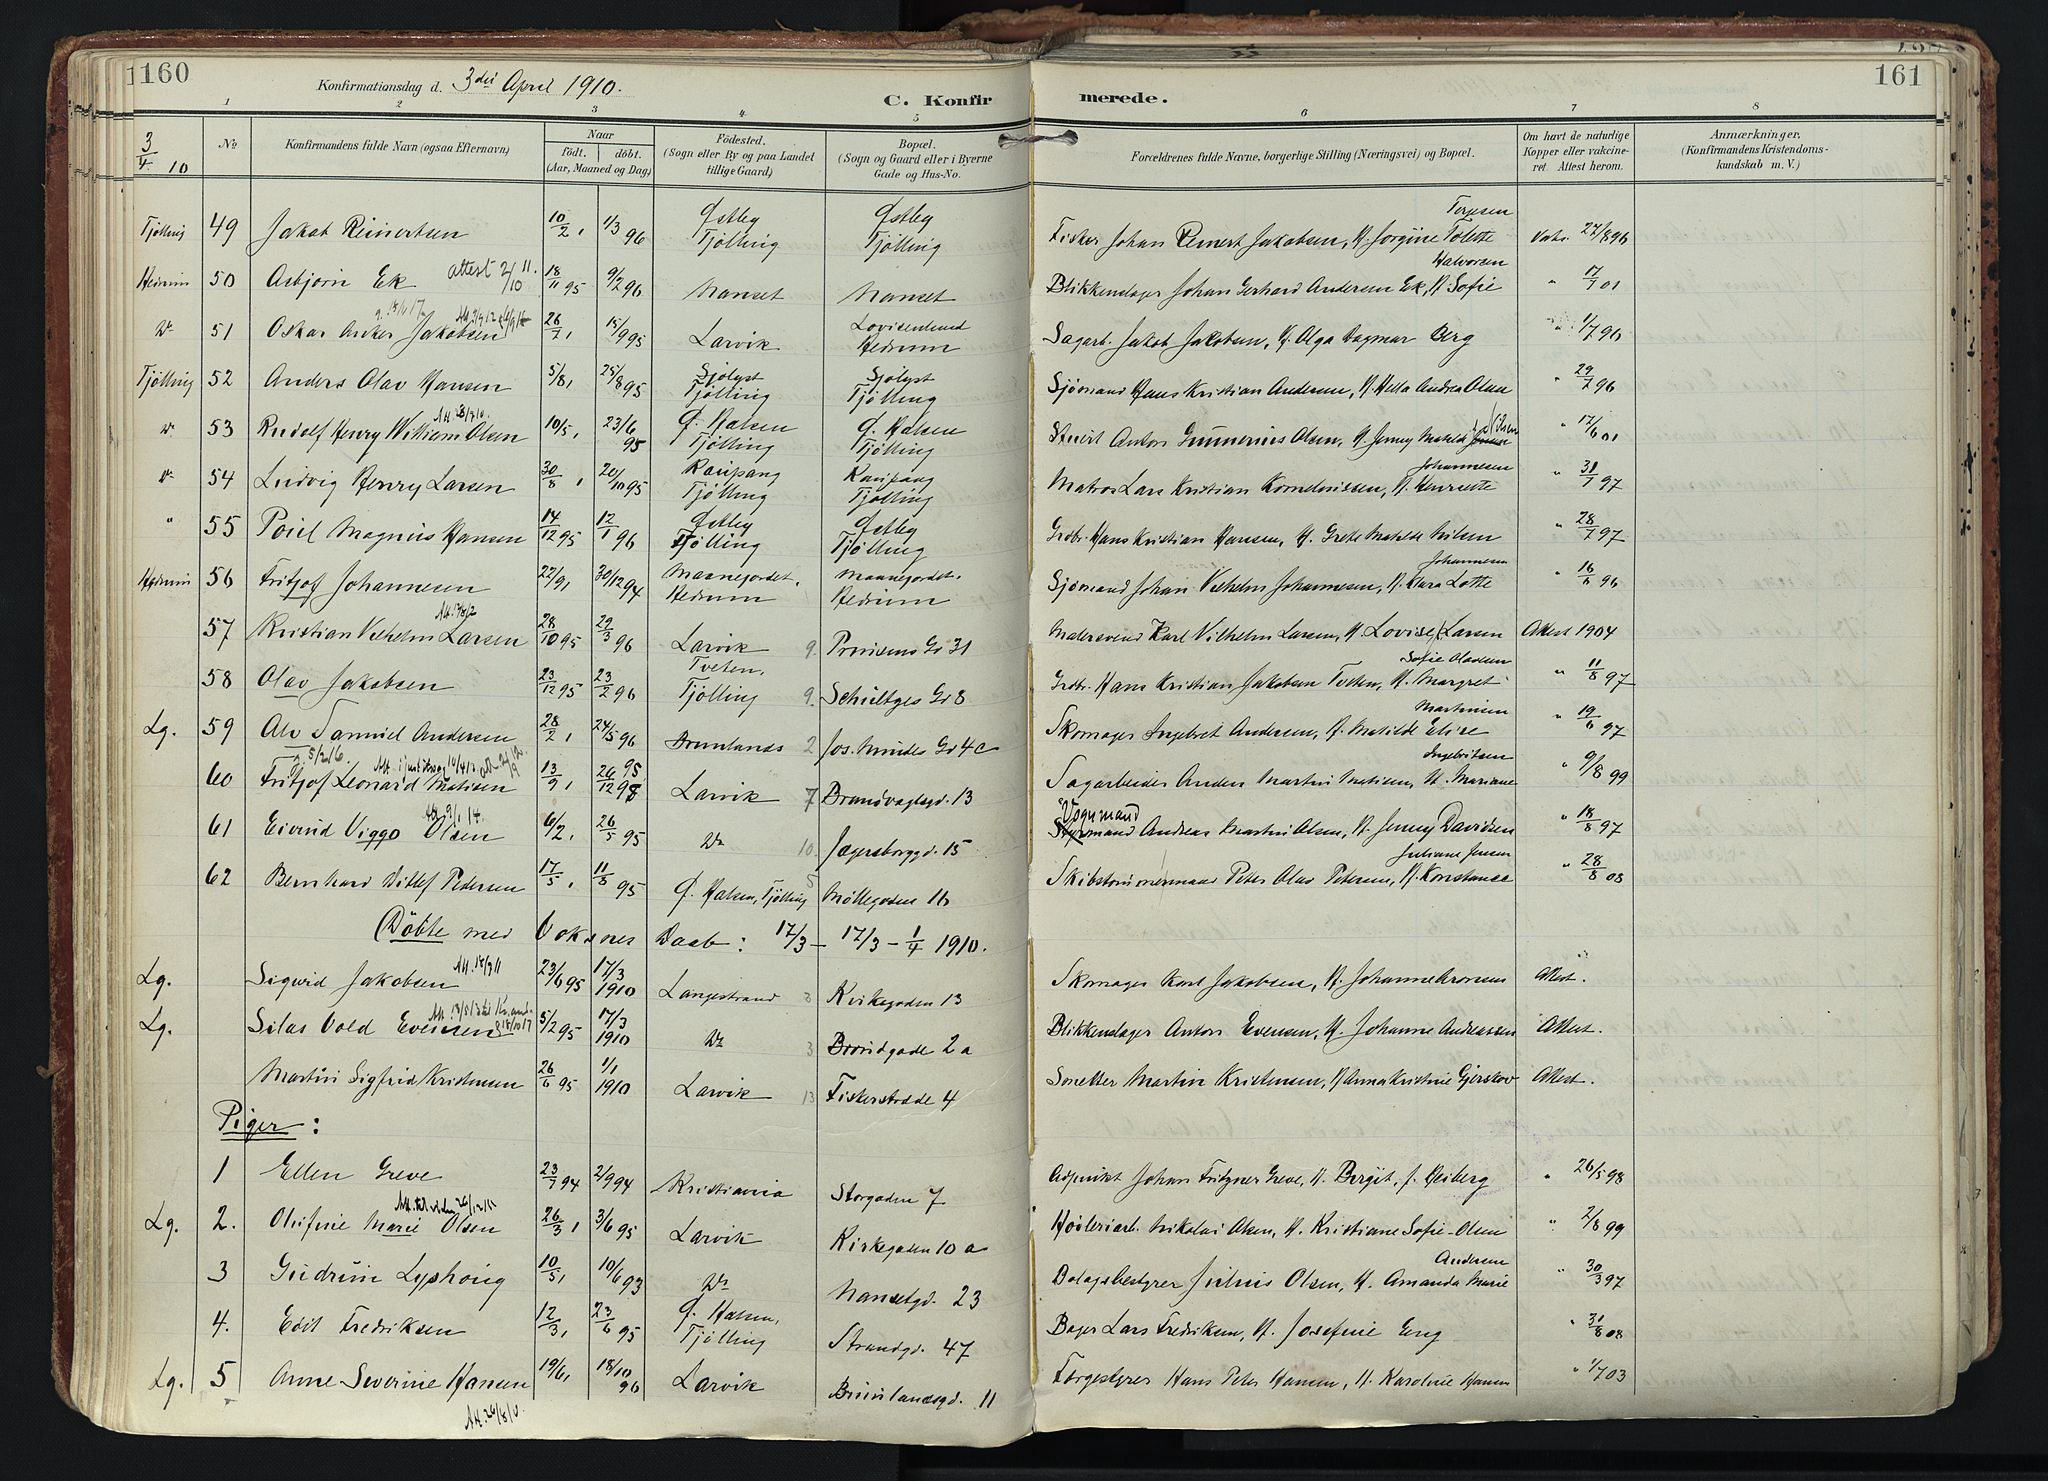 160
Konfirmationsdag d. 3die April 1910.
C. Konfir
merede.
161
1 2 3 4 5 6 7 8
3/4 10
No
Konfirmandens fulde Navn (ogsaa Efternavn)
Naar
födt. döbt.
(Aar, Maaned og Dag)
Födested.
(Sogn eller By og paa Landet
tillige Gaard)
Bopæl.
(Sogn og Gaard eller i Byerne
Gade og Hus-No.
Forældrenes fulde Navne, borgerlige Stilling (Næringsvei) og Bopæl.
Om havt de naturlige
Kopper eller vakcine-
ret. Attest herom.
Anmærkninger.
(Konfirmandens Kristendoms-
kundskab m. V.)
Tjölling 49 Jakob Reinertsen 10/2, 1/3 96 Østby Tjölling Østby Tjölling Fisker Johan Reinert Jakobsen, H. Jorgine Tolette Terjesen Vakc. 27/8 96
Hedrum 50 Asbjørn Ek attest 2/10 11. 18/11 95 9/2 96 Nanset Nanset Blikkenslager Johan Gerhard Andersen Ek, H. Sofie Halvorsen " 17/7 01
Do 51 Oskar Anker Jakobsen 26/7, 15/9 95 Larvik Lovisenlund Hedrum Sagarb. Jakob Jakobsen, H. Olga Dagmar Berg " 1/7 96
Tjölling 52 Anders Olav Hansen 5/8, 25/8 95 Sjölyst Tjölling Sjölyst Tjölling Sjömand Hans Kristian Andersen, H. Helle Andrea Olsen " 29/7 96
Do 53 Rudolf Henry William Olsen 10/5, 23/6 95 Ø. Halsen Tjölling Ø. Halsen Tjölling Stuert Anton Gunnerius Olsen, H. Jenny Matilde " 17/6 01
Do 54 Ludvig Henry Larsen 30/8, 20/10 95 Kaupang Tjölling Kaupang Tjölling Matros Lars Kristian Kornelinssen, H. Henriette Johannesen " 31/7 97
" 55 Poul Magnus Hansen 14/12 95 12/1 96 Østby Tjölling Østby Tjölling Grdbr. Hans Kristian Hansen, H. Grete Matilde Nilsen " 28/7 97
Hedrum 56 Fritjof Johannesen 22/9, 30/12 94 Maanejordet. Hedrum Maanejordet. Hedrum Sjömand Johan Vilhelm Johannesen, H. Klara Lotte Johannesen " 16/6 96
57 Kristian Vilhelm Larsen 28/10 95 29/3 96 Larvik 9. Prinsens Gd 31 Malersvend Karl Vilhelm Larsen, H. Lovise Larsen Attest 1904
58 Olav Jakobsen 23/12 95 23/2 96 Tveten, Tjölling 9. Schultzes Gd 8 Grdbr. Hans Kristian Jakobsen Tveten, H. Margret Sofie Olavsen " 11/8 97
Lg. 59 Alv Samuel Andersen 28/2, 24/5 96 Brunlanes 2 Jos. Mindes Gd 4c Skomager Ingebret Andersen, H. Matilde Elise Martinsen " 19/6 97
60 Fritjof Leonard Matisen 13/9, 26/12 95 Larvik 7 Brandvagtsgd. 13 Sagarbeider Anders Martin Matisen, H. Mariane Ingebritsen " 9/8 99
61 Eivind Viggo Olsen Att. 9/1 14. 6/2, 26/5 95 Do 10. Jægersborggd. 15 Vognmand Andreas Martin Olsen, H. Jenny Davidsen " 18/8 97
62 Bernhard Ditlef Pedersen 17/5, 11/8 95 Ø. Halsen, Tjölling 5 Möllegaden 16 Skibstömmermand Peter Olav Petersen, H. Konstanse Juliane Jensen " 28/8 08
Döbte med Voksnes Daab: 17/3 – 17/3 – 1/4 1910.
Lg. Sigurd Jakobsen Att. 18/3 11 23/6 95 17/3 1910 Langestrand 3 Kvikegaden 13 Skomager Karl Jakobsen, H. Johanne Aronsen Attest.
Lg. Silas Vold Evensen 5/2 95 17/3 1910 Do 3 Brondgade 2a Blikkenslager Anton Evensen, H. Johanne Andreassen Attest.
Martin Sigfrid Kristensen 26/6 95 1/1 1910 Larvik 13 Fiskerstræde 4 Snekker Martin Kristensen, H. Anna Kristine Gjerskov Attest.
Piger:
1 Ellen Greve 23/7 94 2/9 94 Kristiania Storgaden 7 Adjunkt Johan Fritzner Greve, H. Bergit, f. Heiberg " 26/5 98
Lg. 2. Olufine Marie Olsen 26/3, 3/6 95 Larvik Kirkegaden 10a Höileriarb. Nikolai Olsen, H. Kristiane Sofie Olsen " 2/8 99
3 Gudrun Lyshoug 10/5, 10/6 93 Do Nansetgd. 23 Bolagsbestyrer Julius Olsen, H. Amanda Marie Andersen " 30/3 97
4. Edit Fredriksen 12/3, 23/6 95 Ø. Halsen, Tjölling Strandgd. 47 Bager Lars Fredriksen, H. Josefine Eng " 31/8 08
Lg. 5 Anne Severine Hansen 19/6, 18/10 96 Larvik Brunlanesgd. 11 Færgestyrer Hans Peter Hansen, H. Karoline Hansen " 1/7 03
Att. 26/8/10.